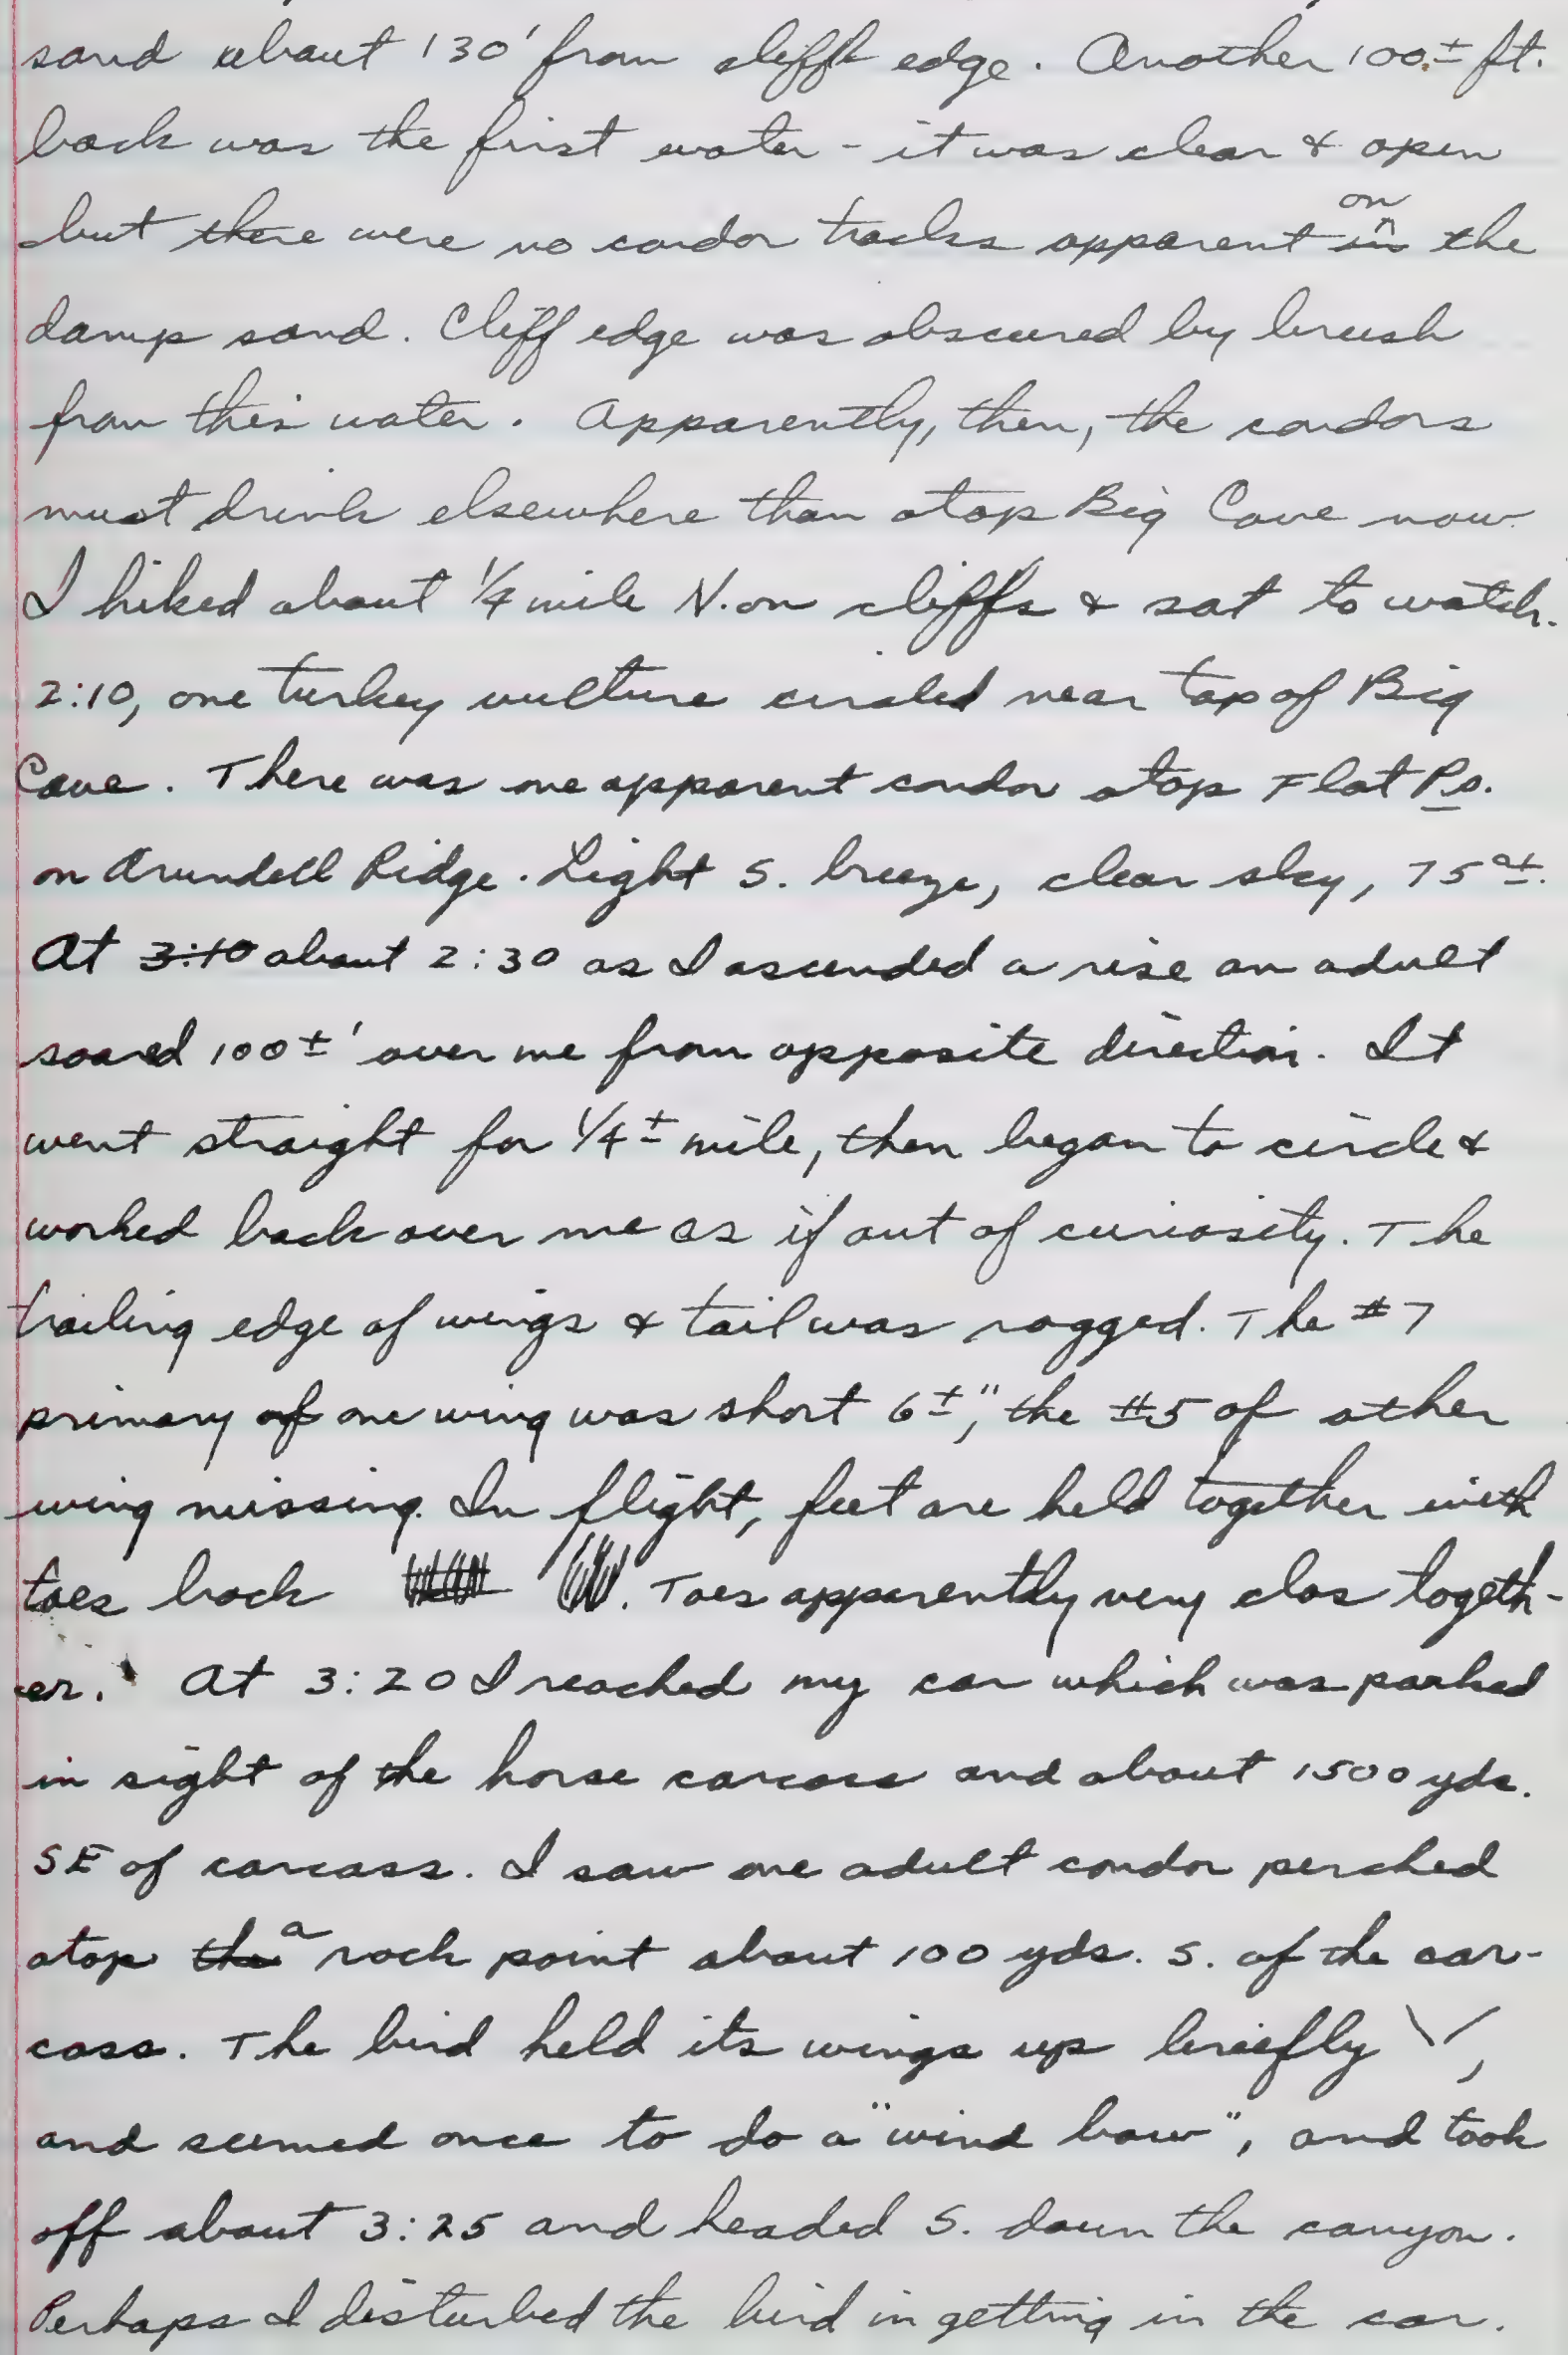 sand about 130' from cliff edge. Another 100± ft.
back was the first water - it was clear & open
but there were no condor tracks apparent in on the
damp sand. Cliff edge was obscured by brush
from this water. Apparently, then, the condors
must drink elsewhere than atop Big Cave now.
I hiked about 1/4 mile N. on cliffs & sat to watch.
2:10, one turkey vulture circled near top of Big
Cave. There was one apparent condor atop Flat Po.
on Arundell Ridge. Light S. breeze, clear sky, 75°±.
At 3:10 about 2:30 as I ascended a rise an adult
soared 100±' over me from opposite direction. It
went straight for 1/4± mile, then began to circle &
worked back over me as if out of curiosity. The
trailing edge of wings & tail was ragged. The #7
primary of one wing was short 6±", the #5 of other
wing missing. In flight, feet are held together with
toes back. Toes apparently very clos togeth-
er. At 3:20 I reached my car which was parked
in sight of the horse carcass and about 1500 yds.
SE of carcass. I saw one adult condor perched
atop the a rock point about 100 yds. S. of the car-
cass. The bird held its wings up briefly \/,
and seemed once to do a "wind bow", and took
off about 3:25 and headed S. down the canyon.
Perhaps I disturbed the bird in getting in the car.